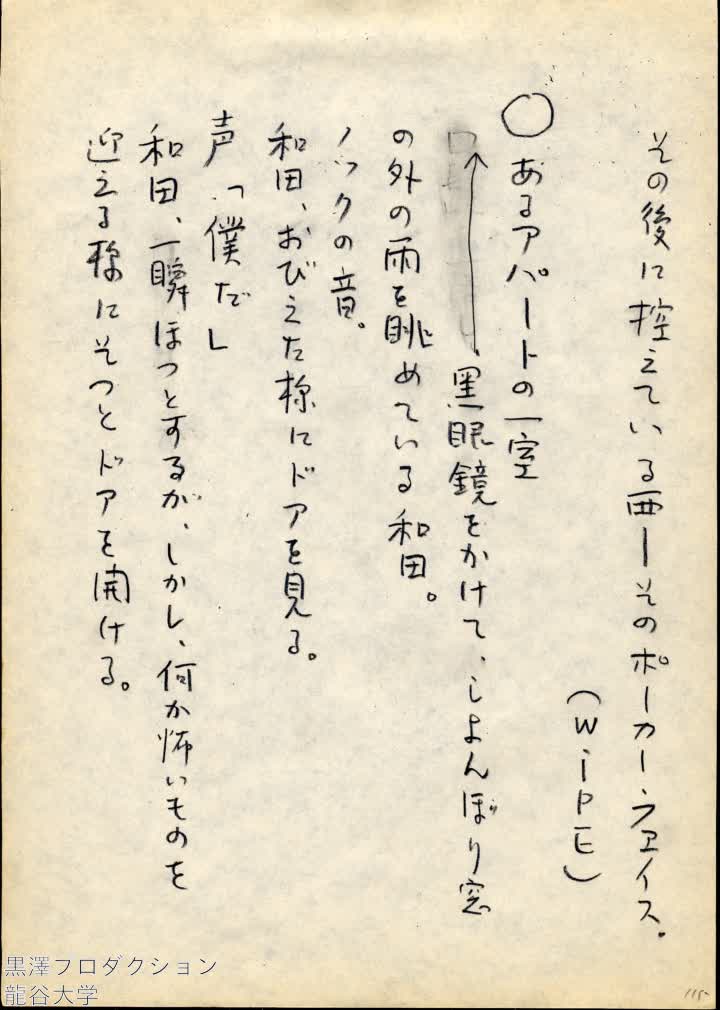 その後に控えている西ーそのポーカー・フェイス。
(WiPE)
○あるアパートの一室
黒眼鏡をかけて、しよんぼり窓
の外の雨を眺めている和田。
ノックの音。
和田、おびえた様にドアを見る。
声「僕だ」
和田、一瞬ほつとするが、しかし、何か怖いものを
迎える様にそつとドアを開ける。
115
黒澤プロダクション
龍谷大学